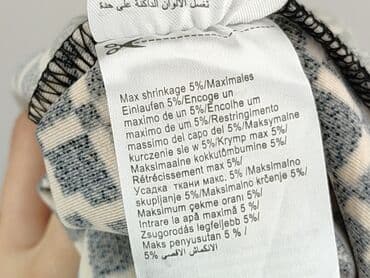 تغسل الألوان الداكنة على حدة
Max shrinkage 5%/Maximales
Einlaufen 5%/Encoge un
maximo de un 5%/Encolhe um
maximo de um 5%/Restringimento
massimo del capo del 5%/Maksymalne
kurczenie sie w 5%/Krymp max 5%/
Maksimaalne kokkutõmbumine 5%/
Rétrécissement max 5%/
Усадка ткани макс. 5%/Maksimalno
skupljanje 5%/Maksimalno krčenje 5%/
Maksimum çekme oranı 5%/
Intrare la apă maximă 5 %/
Zsugorodás legfeljebb 5%/
Maks penyusutan 5 %/
الانكماش الأقصى 5%